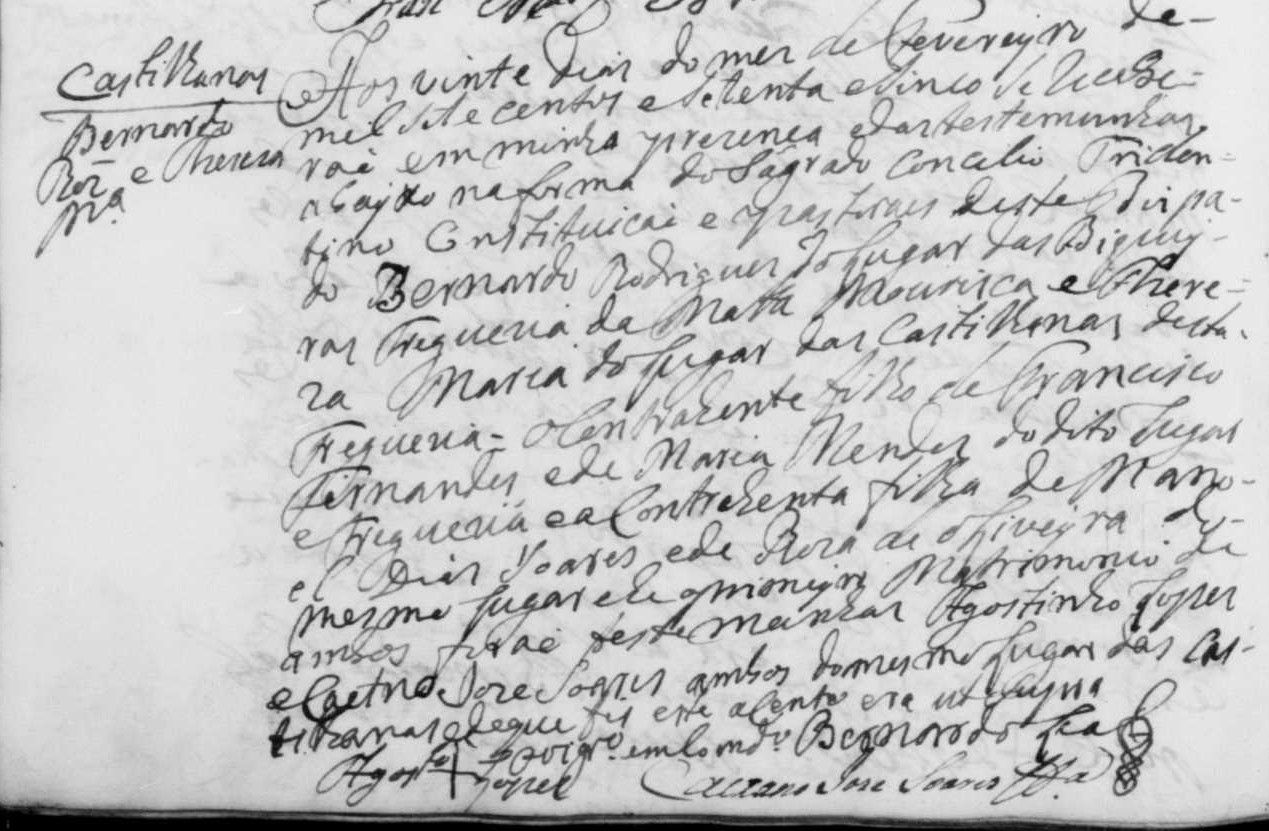 Castilhanas
Bernardo
Roiz e Thereza
Ma
Aos vinte dias do mez de Fevereyro de-
mil sete centos e setenta e sinco se Recebe-
raõ em minha prezença e das testemunhas
abayxo na forma do Sagrado Concilio Triden-
tino Constituicaõ e pastoraes deste Bispa-
do Bernardo Rodrigues do lugar das Biquij-
ras Freguezia da Mata Mourisca e There-
za Maria do lugar das Castilhanas desta
Freguezia = o Contrahente filho de Francisco
Fernandes e de Maria Mendes do dito lugar
e Freguezia e a Contrahenta filha de Mano-
el Dias Soares e de Roza de Oliveyra do-
mesmo lugar e de primeyro Matrimonio de
ambos foraõ testemunhas Agostinho Lopes
e Caetno Joze Soares ambos do mesmo lugar das Cas-
tilhanas e de que fis este acento era ut supra
Bernardo
Agosto Lopes
Caetano Joze Soares